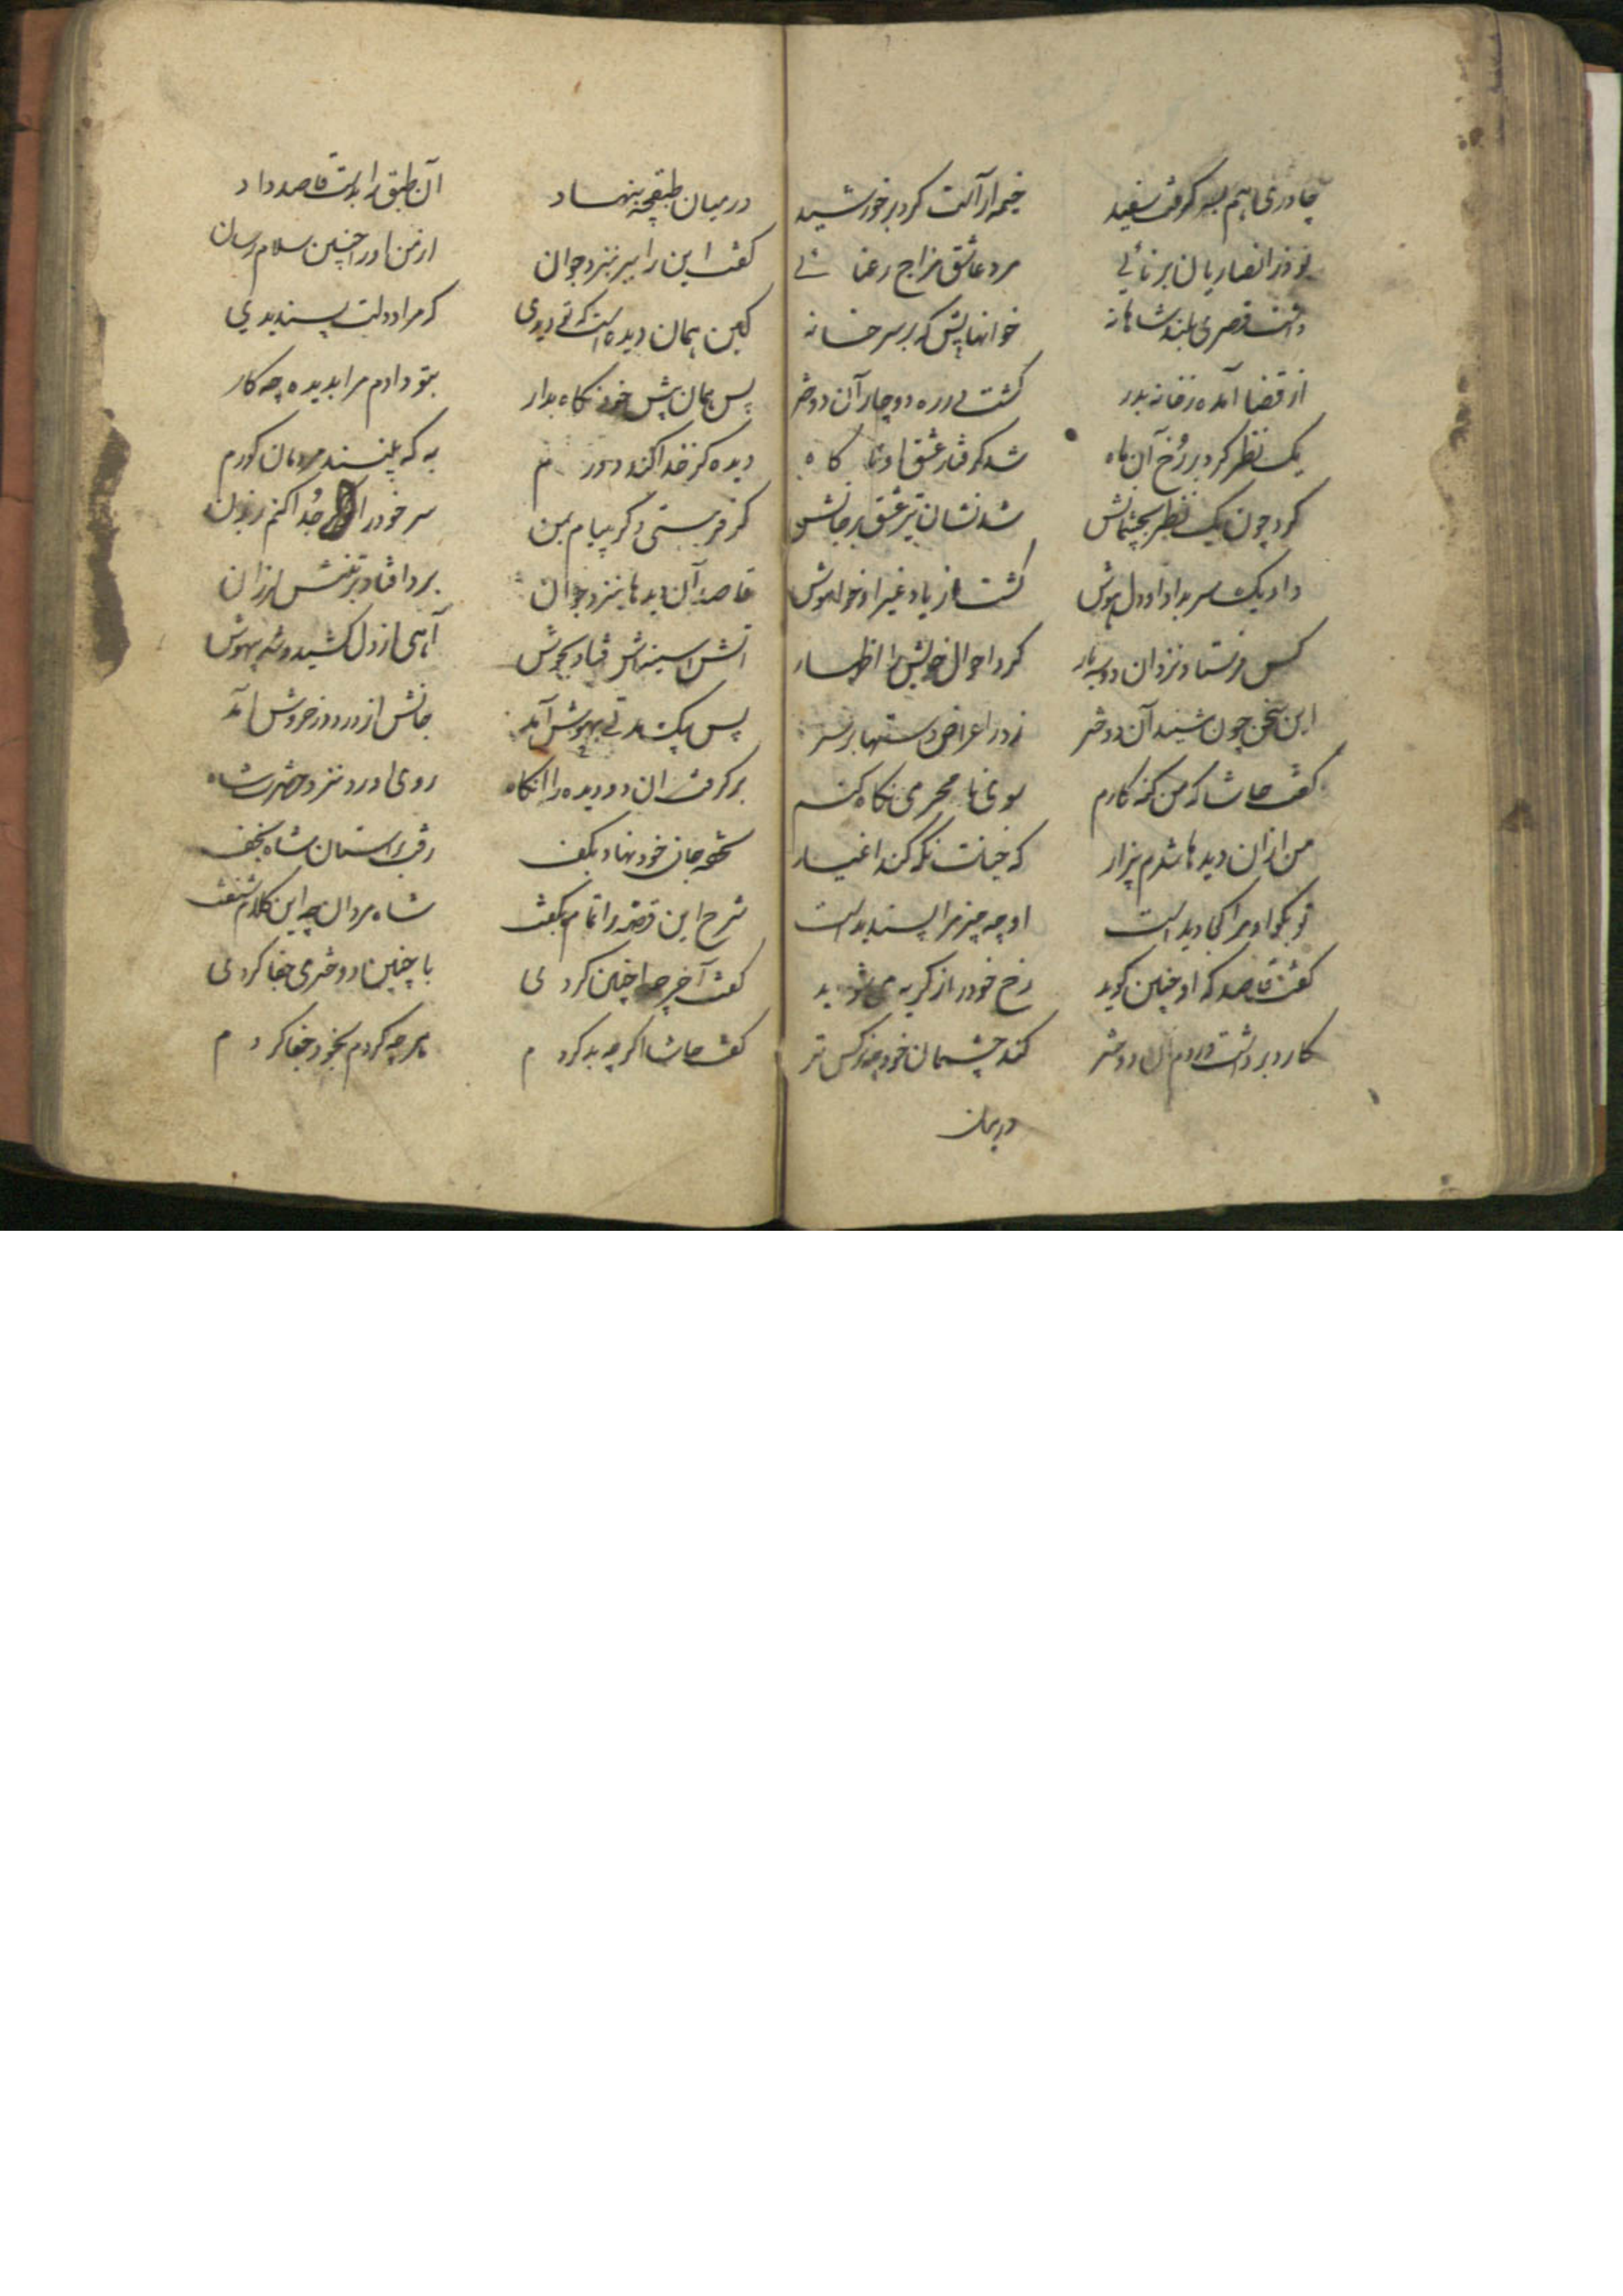 چادری هم بسر گرفت سفید
خیمه از آلت کرد بر خورشید
بود ز انصاریان برنائی
مرد عاشق مزاج رعنائی
داشت قصری بلند شاهانه
که بر سر خانه
از قضا آمده ز خانه بدر
گشت دوچار آن دختر
یک نظر کرد بر رخ آن ماه
شد گرفتار عشق او ناگاه
کرد چون یک نظر بچشمانش
شد نشان تیر عشق بر جانش
داد یک سر بداد او دل و هوش
گشت از یاد غیر او خاموش
کس فرستاد نزد آن دو سه بار
کرد احوال خویش را اظهار
این سخن چون شنید آن دختر
زد ز اعراض دستها بر سر
گفت حاشا که من گنه کارم
سوی نا محرمی نگاه کنم
من از آن دیدها شدم بیزار
که خیانت نگه کند اغیار
تو بگو او مرا کجا دیدست
او چه چیز مرا پسندیدست
گفت قاصد که او چنین گوید
رخ خود را ز گریه می شوید
کارد برداشت در دم آن دختر
کند چشمان خود چو نرگس تر
درمیان
درمیان طبقچه بنهاد
آن طبق را بدست قاصد داد
گفت این را ببر بنزد جوان
از من او را چنین سلام رسان
کین همان دیده است که تو دیدی
که مرا دولت پسندیدی
پس همان پیش خود نگاه بدار
بتو دادم مرا بدیده چه کار
دیده کز خدا کند دورم
به که بینند مردمان کورم
گر فرستی دگر پیام بمن
سر خود را جدا کنم ز بدن
قاصد آن دیدها بنزد جوان
برد افتاد بر تنش لرزان
آتش سینه‌اش فتاد بجوش
آهی از دل کشید و شد بیهوش
پس یک مدتی بهوش آمد
جانش از درد در خروش آمد
برگرفت آن دو دیده را آنگاه
روی آورد نزد حضرت شاه
تحفه جان خود نهاد بکف
رفت بر آستان شاه نجف
شرح این قصه را تمام بگفت
شاه مردان چو این کلام شنفت
گفت آخر چرا چنین کردی
با چنین دختری جفا کردی
گفت حاشا اگرچه بد کردم
هر چه کردم بخود جفا کردم